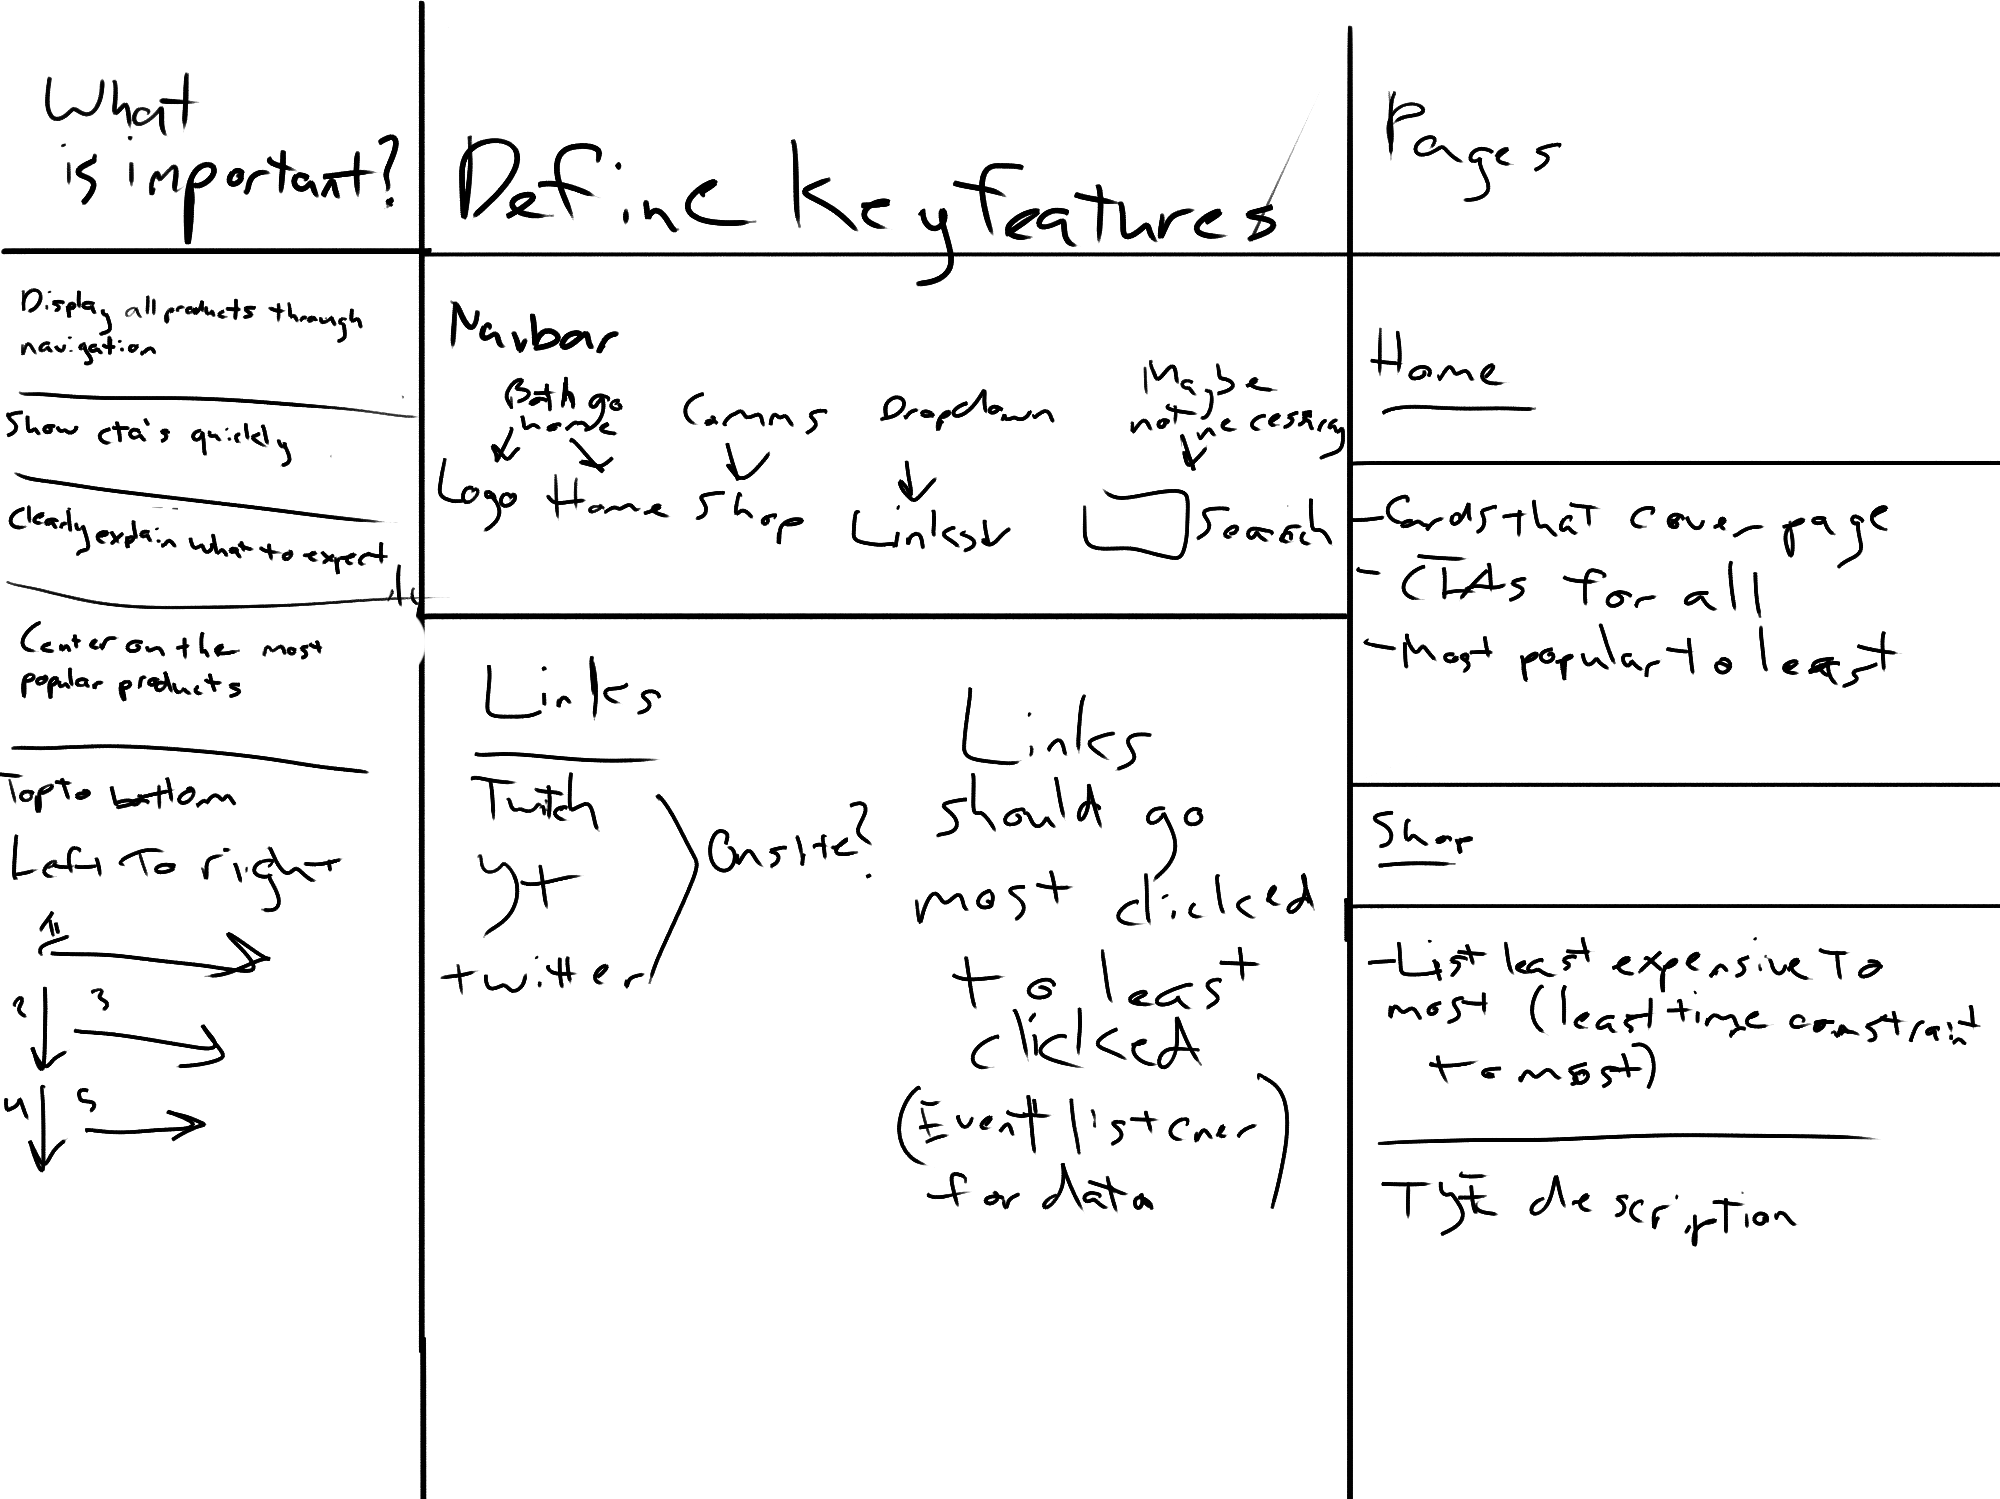 What
is important?
Display all products through
navigation
Show cta's quickly
Clearly explain what to expect
Center on the most
popular products
Top to bottom
Left To right
1
2 3
4 5
Define key features
Navbar
Both go
home
Comms
Dropdown
Maybe
not necessary
Logo Home Shop Links Search
Links
Twitch
yt
twitter
Onsite?
Links
should go
most clicked
to least
clicked
(Event listener
for data)
Pages
Home
-Cards that cover page
- CTAs for all
-Most popular to least
Shop
-List least expensive To
most (least time constraint
to most)
description